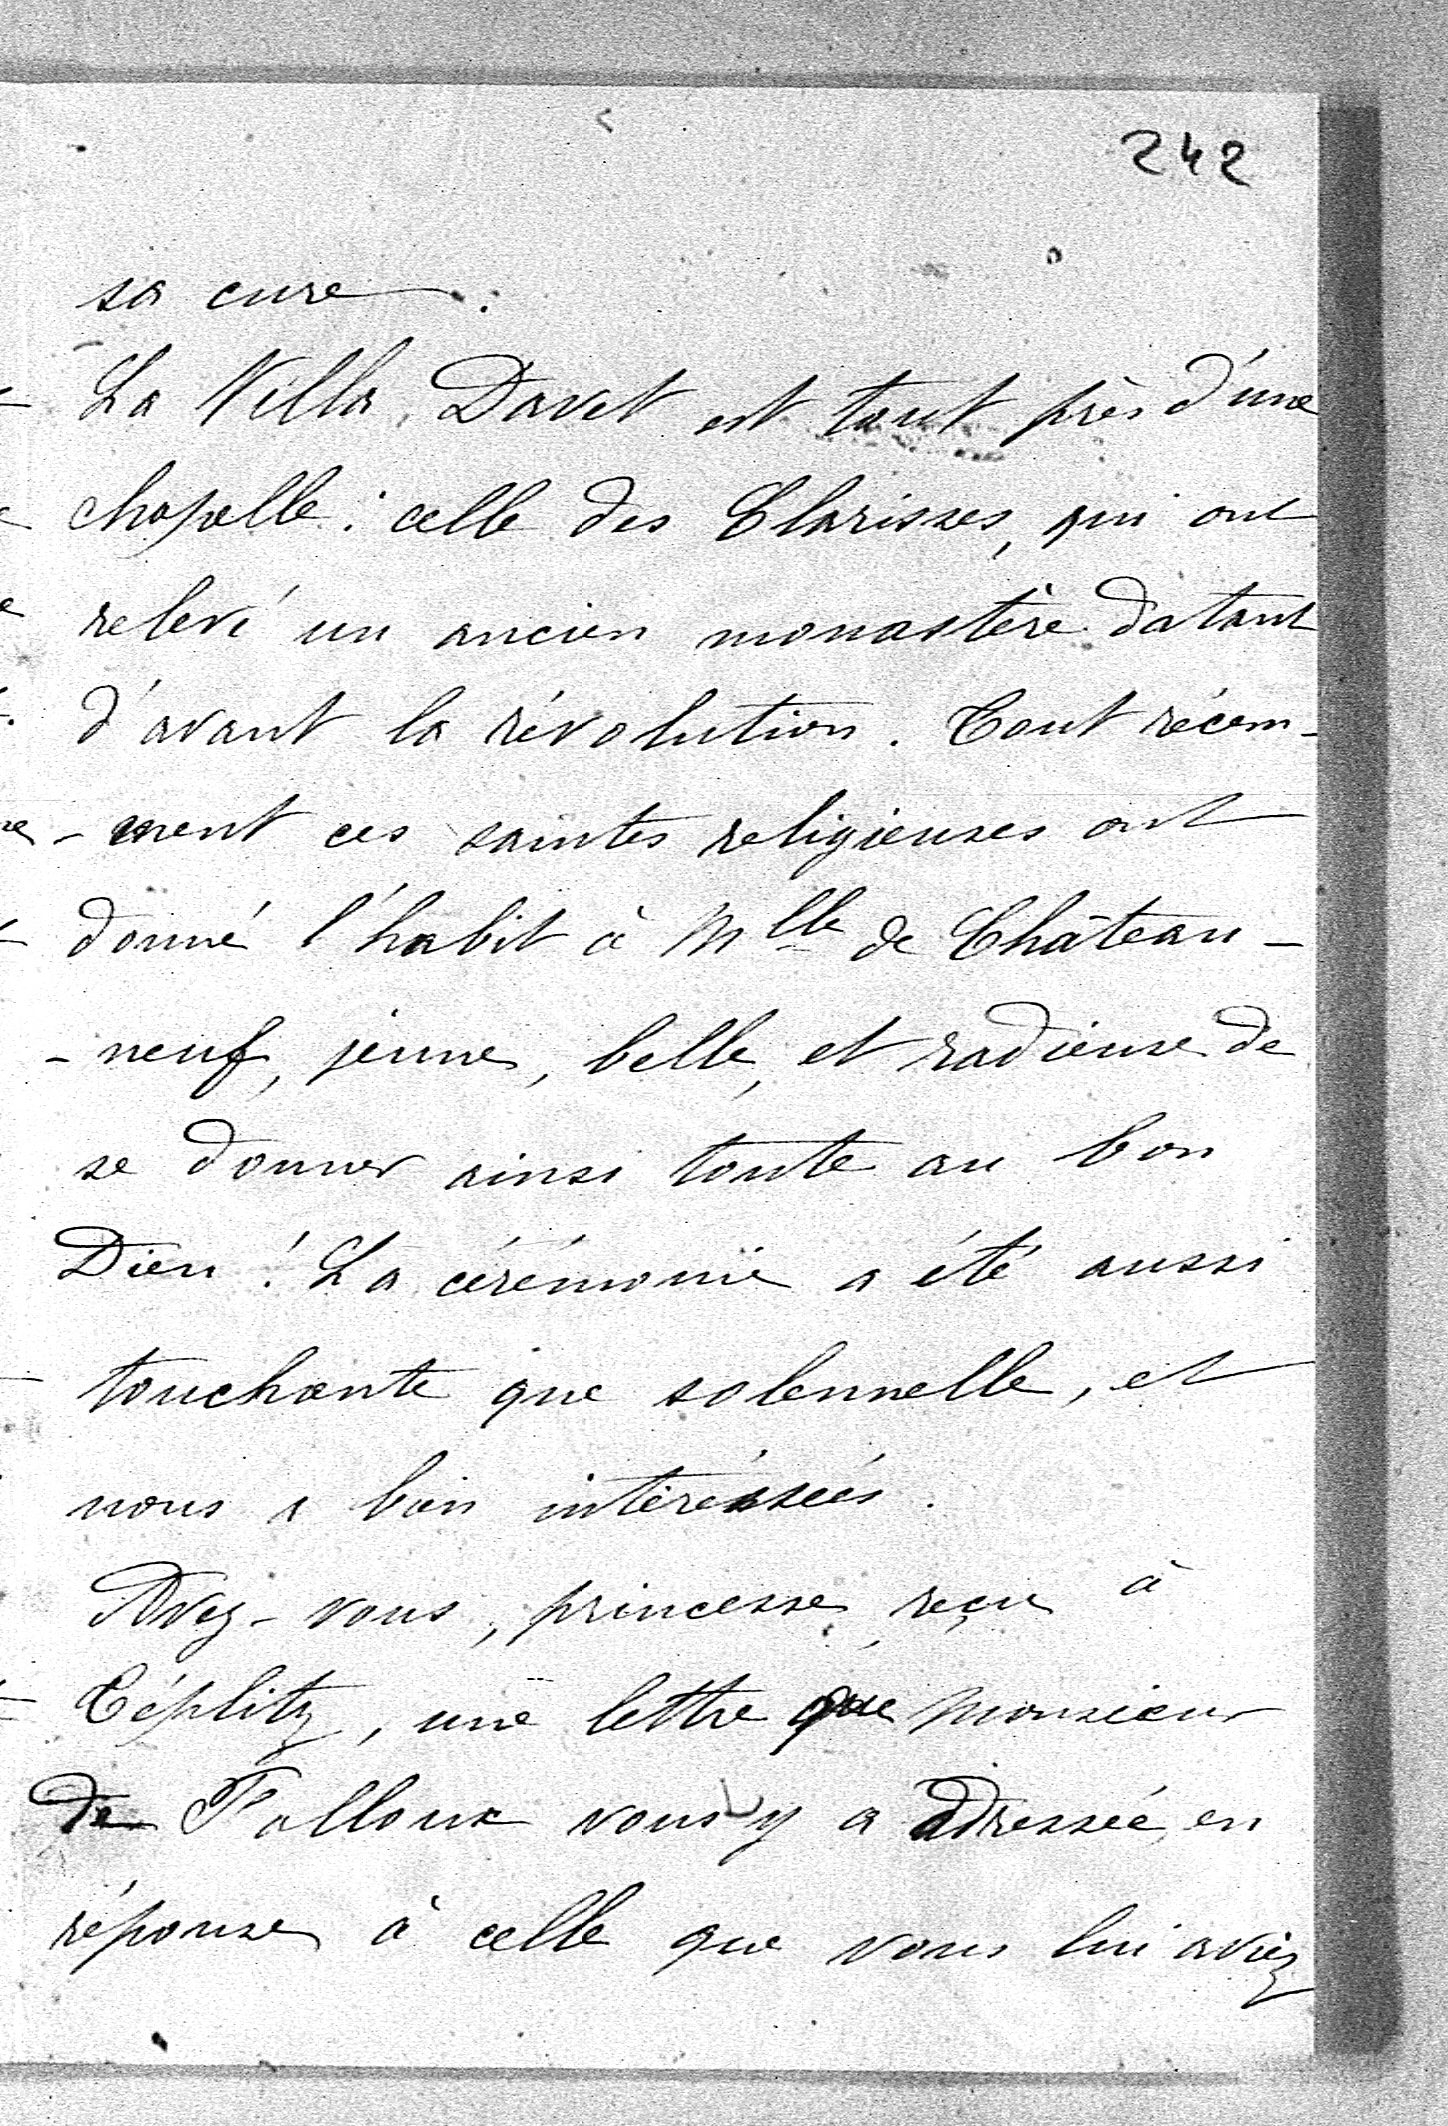 242
sa cure.
La Villa Davet est tout près d'une
chapelle : celle des Clarisses, qui ont
relevé un ancien monastère datant
d'avant la révolution. Tout récem-
-ment ces saintes religieuses ont
donné l'habit à Mlle de Château-
-neuf, jeune, belle, et radieuse de
se donner ainsi toute au bon
Dieu ! La cérémonie a été aussi
touchante que solennelle, et
nous a bien intéressées.
Avez-vous, princesse, reçu à
Téplitz, une lettre que Monsieur
de Falloux vous y a adressée, en
réponse à celle que vous lui aviez